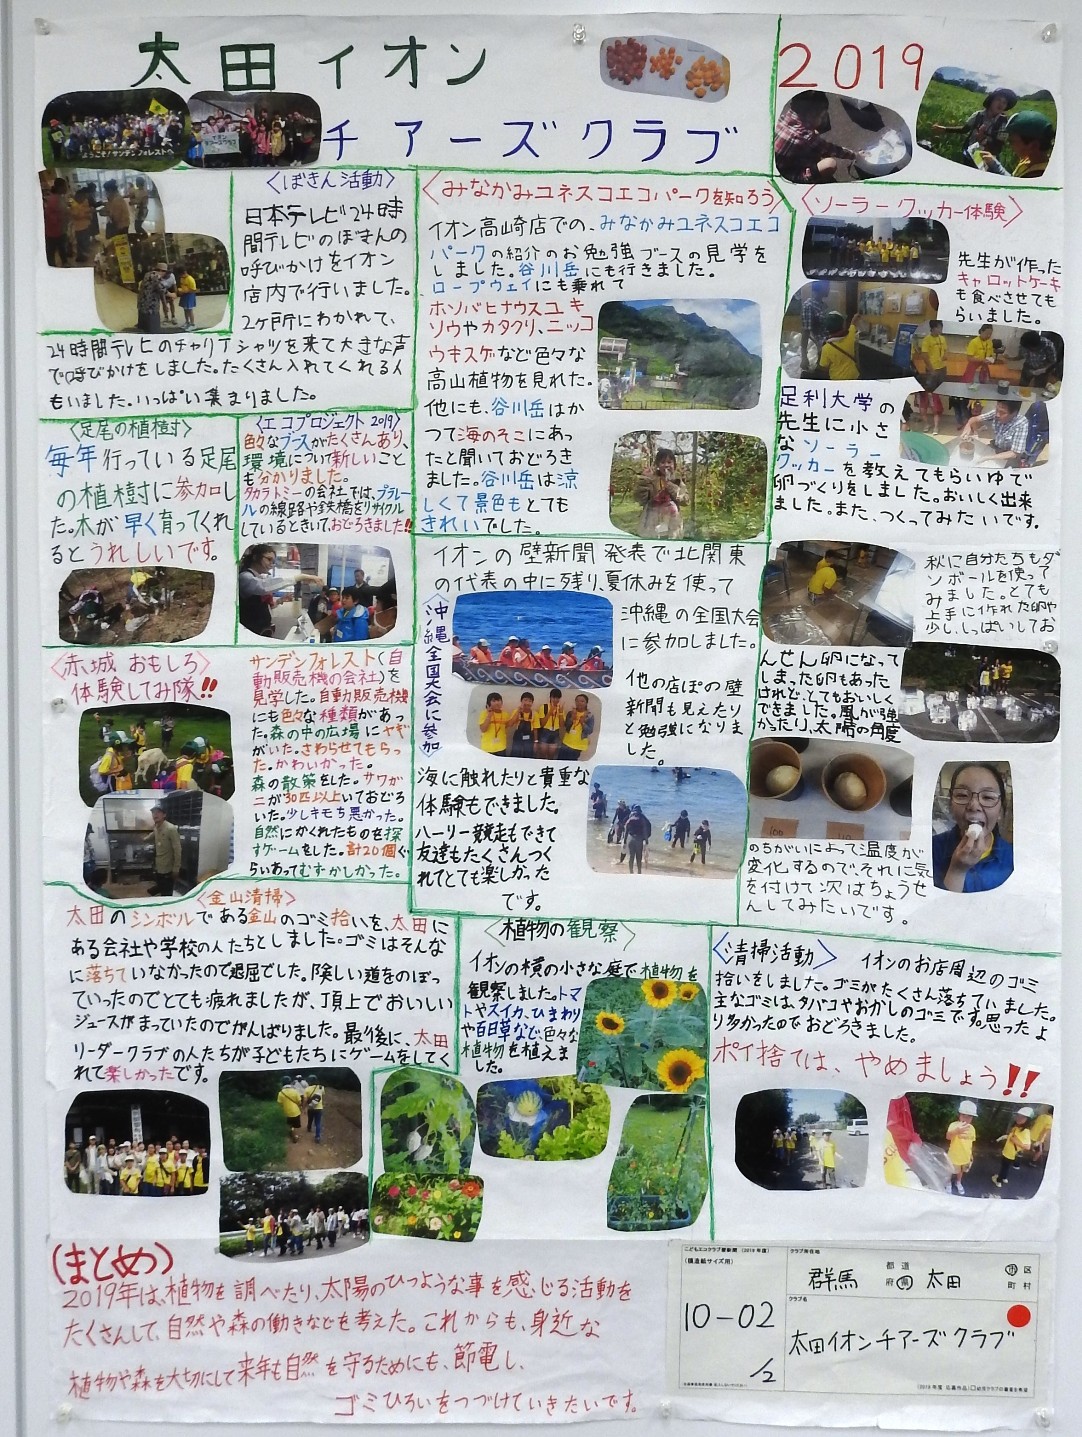 太田イオン
チアーズクラブ
2019
ようこそ!サンデンフォレストへ
<ぼきん活動>
日本テレビ24時
間テレビのぼきんの
呼びかけをイオン
店内で行いました。
2ヶ所にわかれて、
24時間テレビのチャリTシャツを来て大きな声
で呼びかけをしました。たくさん入れてくれる人
もいました。いっぱい集まりました。
<足尾の植樹>
毎年行っている足尾
の植樹に参加し
た。木が早く育ってくれ
るとうれしいです。
<エコプロジェクト2019>
色々なブースがたくさんあり、
環境について新しいこと
も分かりました。
タカラトミーの会社では、プラレー
ルの線路や鉄橋をリサイクル
しているときいて、おどろきました!!
<みなかみユネスコエコパークを知ろう>
イオン高崎店での、みなかみユネスコエコ
パークの紹介のお勉強ブースの見学を
しました。谷川岳にも行きました。
ロープウェイにも乗れて
ホソバヒナウスユキ
ソウやカタクリ、ニッコ
ウキスゲなど色々な
高山植物を見れた。
他にも、谷川岳はか
つて海のそこにあっ
たと聞いておどろき
ました。谷川岳は涼
しくて景色もとても
きれいでした。
<ソーラークッカー体験>
先生が作った
キャロットケーキ
も食べさせても
らいました。
足利大学の
先生に小さ
なソーラー
クッカーを教えてもらいゆで
卵づくりをしました。おいしく出来
ました。また、つくってみたいです。
秋に自分たちもダ
ンボールを使って
みました。とても
上手に作れた卵や
少し、しっぱいしてお
んせん卵になって
しまった卵もあった
けれど、とてもおいしく
できました。風が強
かったり、太陽の角度
のちがいによって温度が
変化するので、それに気
を付けて次はちょうせ
んしてみたいです。
イオンの壁新聞発表で北関東
の代表の中に残り、夏休みを使って
<沖縄全国大会に参加>
沖縄の全国大会
に参加しました。
他の店ぽの壁
新聞も見えたり
と勉強になりま
した。
海に触れたりと貴重な
体験もできました。
ハーリー競走もできて
友達もたくさんつく
れてとても楽しかった
です。
<赤城おもしろ
体験してみ隊!!>
サンデンフォレスト(自
動販売機の会社)を
見学した。自動販売機
にも色々な種類があっ
た。森の中の広場にヤギ
がいた。さわらせてもらっ
た。かわいかった。
森の散策をした。サワガ
ニが30匹以上いておどろ
いた。少しキモち悪かった。
自然にかくれたものを探
すゲームをした。計20個ぐ
らいあってむずかしかった。
<金山清掃>
太田のシンボルである金山のゴミ拾いを、太田に
ある会社や学校の人たちとしました。ゴミはそんな
に落ちていなかったので退屈でした。険しい道をのぼっ
ていったのでとても疲れましたが、頂上でおいしい
ジュースがまっていたのでがんばりました。最後に、太田
リーダークラブの人たちが子どもたちにゲームをしてく
れて楽しかったです。
<植物の観察>
イオンの横の小さな庭で植物を
観察しました。トマ
トやスイカ、ひまわり
や百日草など、色々な
植物を植えま
した。
<清掃活動>
イオンのお店周辺のゴミ
拾いをしました。ゴミがたくさん落ちていました。
主なゴミは、タバコやおかしのゴミです。思ったよ
り多かったのでおどろきました。
ポイ捨ては、やめましょう!!
(まとめ)
2019年は、植物を調べたり、太陽のひつような事を感じる活動を
たくさんして、自然や森の働きなどを考えた。これからも、身近な
植物や森を大切にして来年も自然を守るためにも、節電し、
ゴミひろいをつづけていきたいです。
こどもエコクラブ壁新聞(2019年度)
(模造紙サイズ用)
10-02
1/2
クラブ所在地
群馬 都道府県 太田 市区町村
クラブ名
太田イオンチアーズクラブ